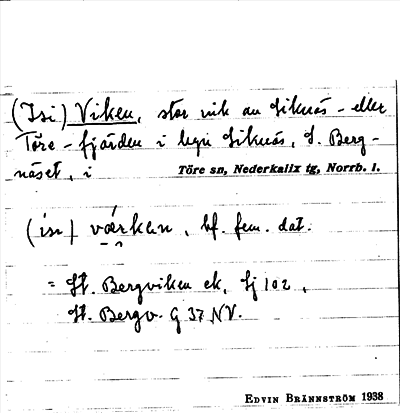 (Isi) Viken, stor vik av Siknäs- eller
Töre-fjärden i byn Siknäs, S. Berg-
näset, i Töre sn, Nederkalix tg, Norrb. l.
(isi) várkan, bf. fem. dat.
= St. Bergviken ek,
St. Bergv. G 37 NV.
EDVIN BRÄNNSTRÖM 1938